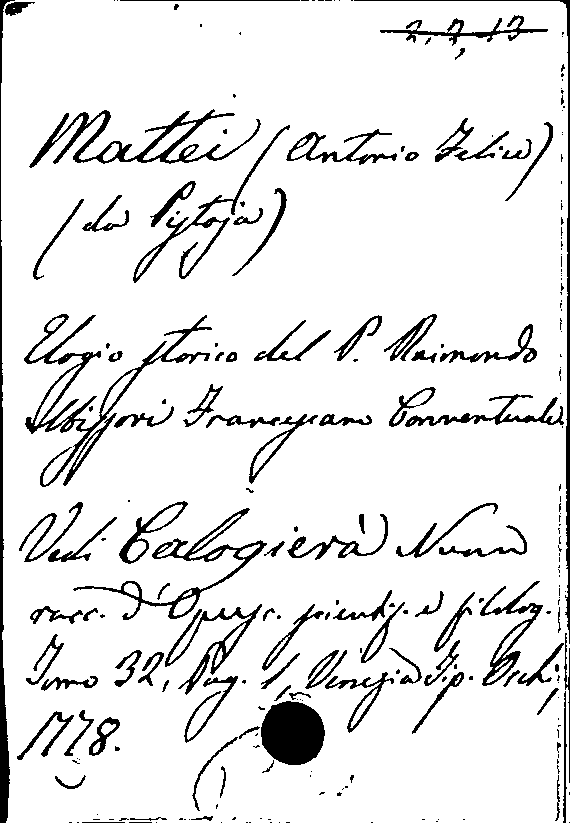 2, 2, 13
Mattei (Antonio Felice)
(da Pistoja)
Elogio storico del P. Raimondo
Albizzori Francescano Conventuale.
Vedi Calogierà Nuova
racc. d'Opusc. scientif. e filolog.
Tomo 32, Pag. 1, Venezia Tip. Occhi,
1778.